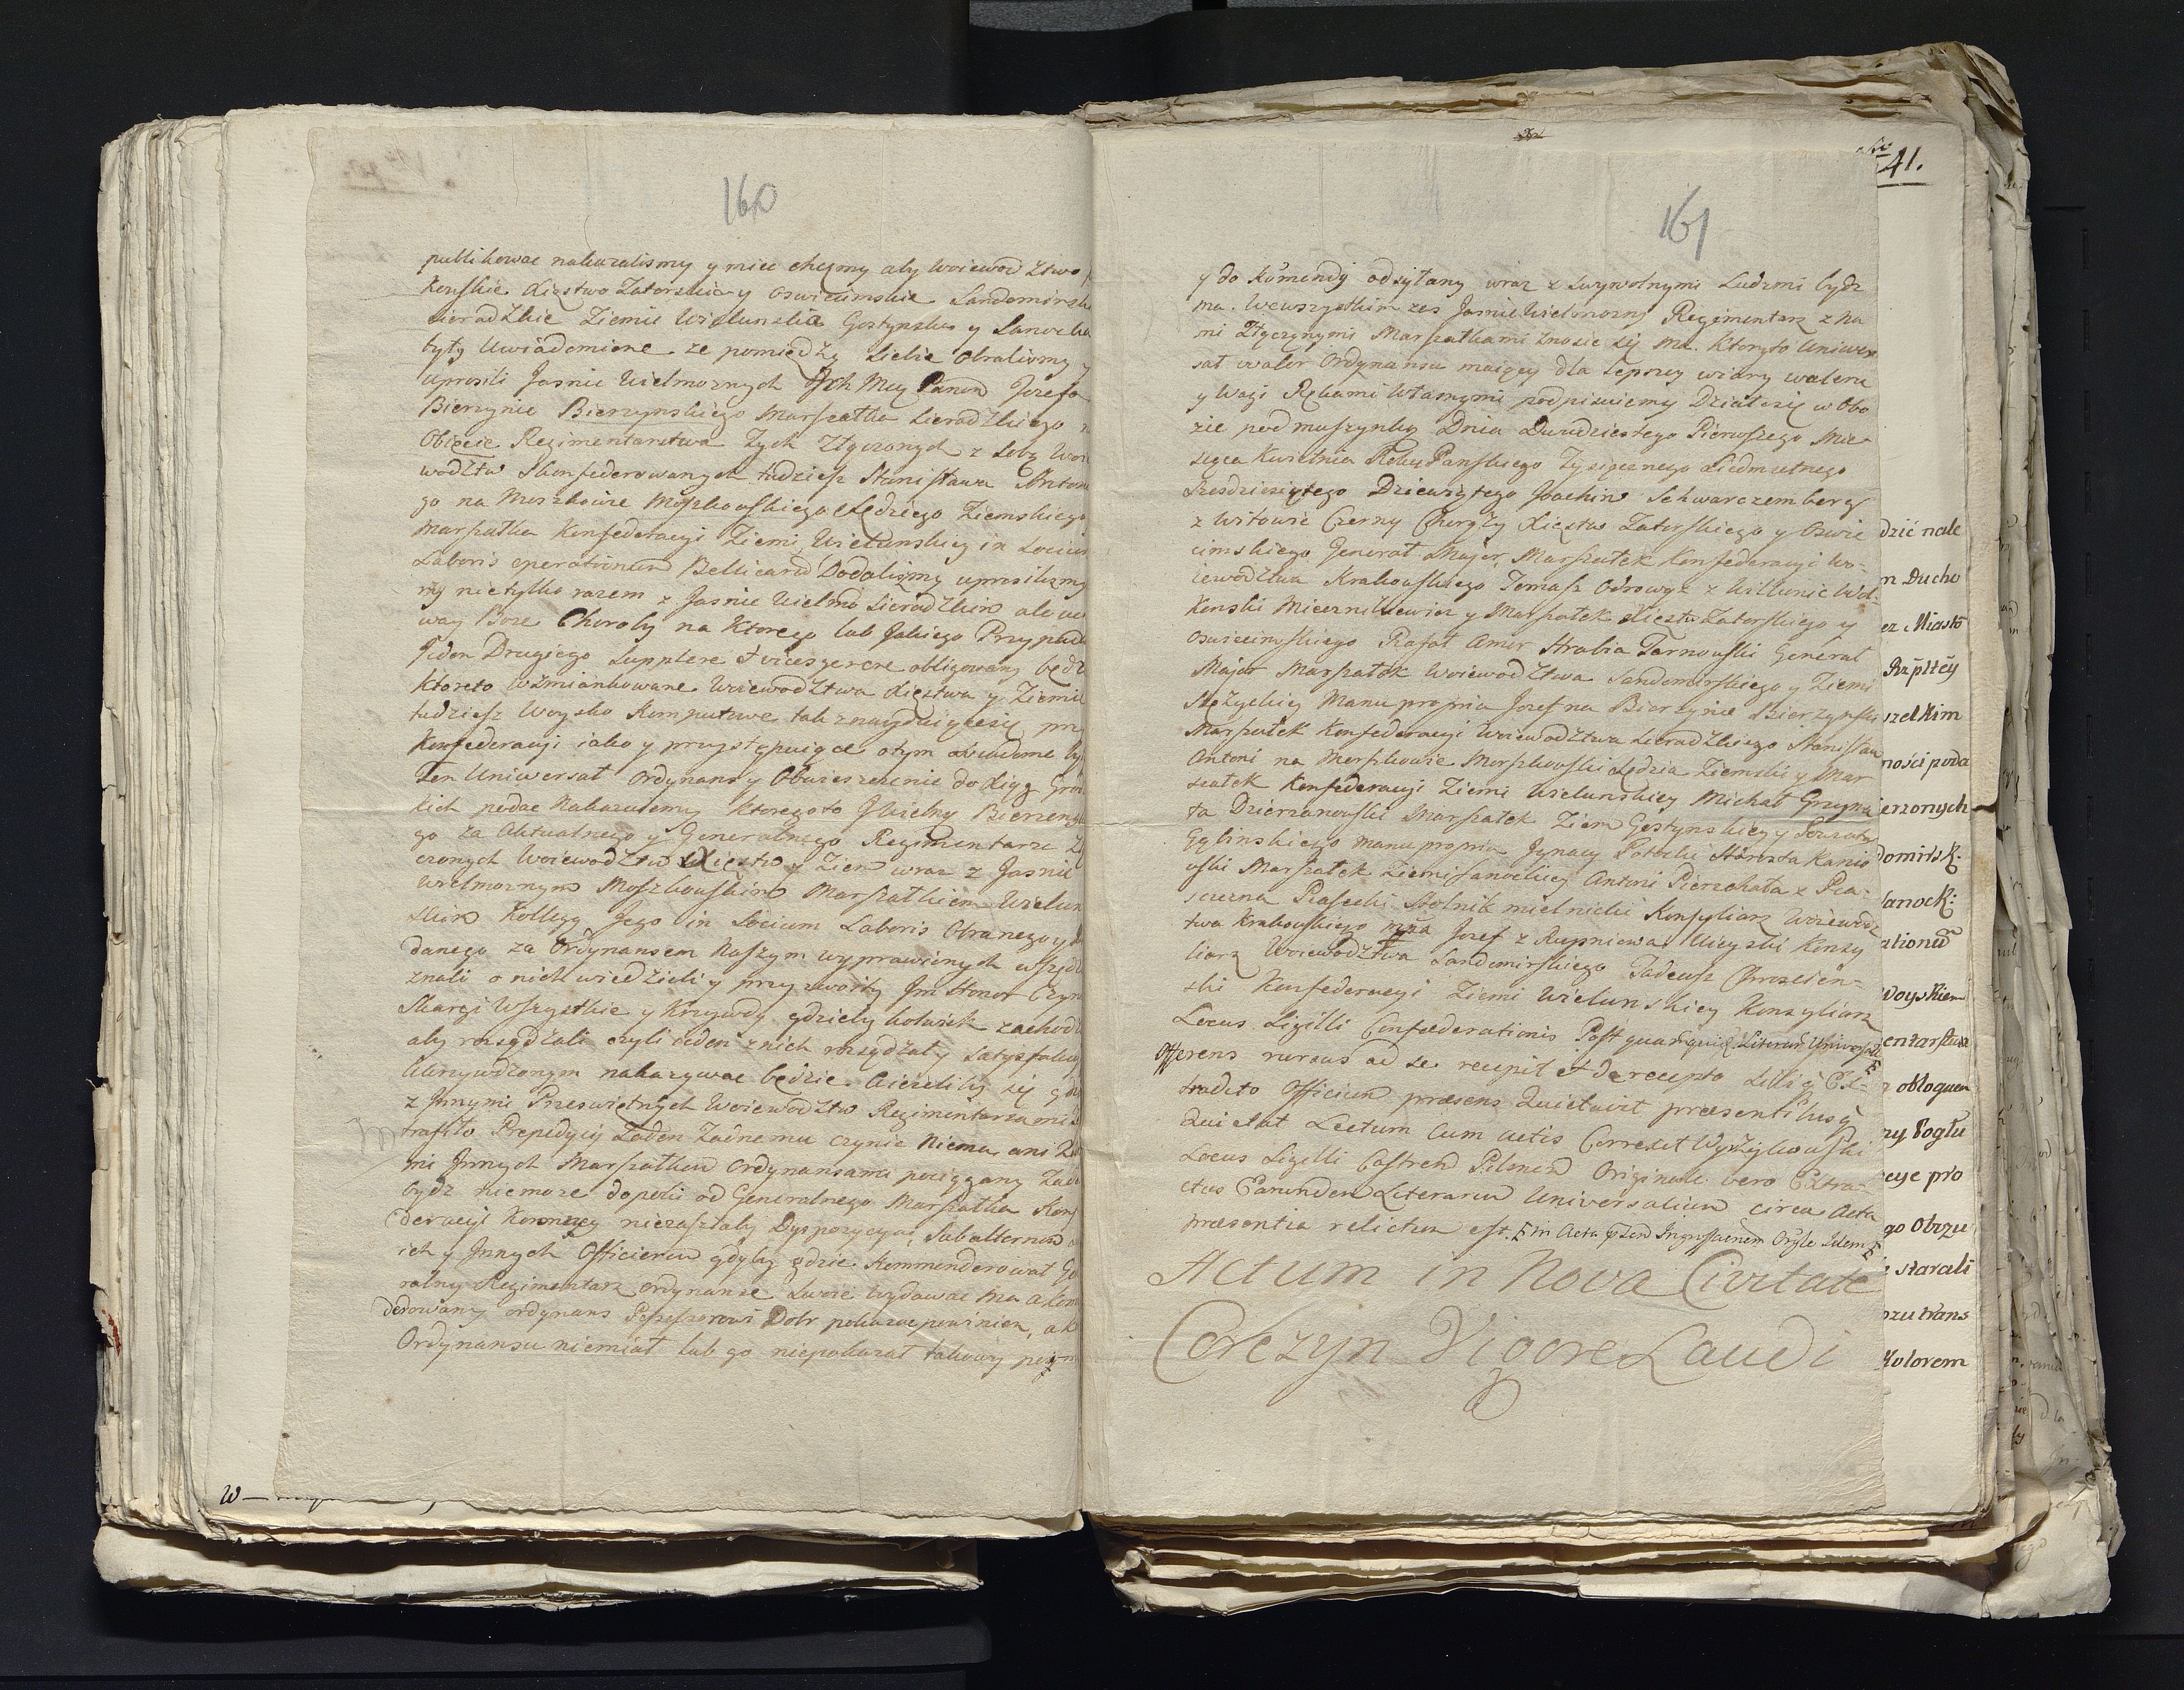 160
publikować nakazalismy y mieć chcemy aby Woiewodztwo
Kowskie Xięstwo Zatorskie y Oswiecimskie Sandomirskie
Sieradzkie Ziemie Wielunskia Gostynska y Sanocka
były Uwiadomione ze pomiędzy Siebie Obralismy y
uprosili Jasnie Wielmoznych Ich Mcy Panow Jozefa
Bierzynie Bierzynskiego Marszałka Sieradzkiego
Obięcie Regimentarstwa Tych Złączonych z Sobą Woie
wodztw Skonfederowanych tudziesz Stanisława Anton
go na Moszkowie Moszkowskiego Sędziego Ziemskiego
Marszałka Konfederacyi Ziemi Wielunskiey in Socium
Laboris operationum Bellicarum Dodalismy uprosilismy
my nietylko razem z Jasnie Wielmo Sieradzkim ale uc
way Boze Choroby na Ktorego lub Jakiego Przypadk
Jeden Drugiego Supplere & vicesgerere obligowany będz
Ktoreto wzmiankowane Woiewodztwa Xięstwa y Ziemie
tudziesz Woysko Komputowe tak znayduiącesię przy
Konfederacyi iako y przystępuiące otym wiadome by
Ten Uniwersał Ordynans y Obwieszczenie do Xiąg Grod
kich podac Nakazuiemy Ktoregoto JWielny Bierzyns
go za Aktualnego y Generalnego Regimentarza Zł
czonych Woiewodztw Xięstw y Ziem wraz z Jasnie
Wielmoznym Moszkowskim Marszałkiem Wielun
skim Kollegą Jego in Socium Laboris Obranego y
danego za Ordynansem Naszym wyprawionych wszędz
znali o nich wiedzieli y przyzwoity Im Honor Czyn
Skargi Wszystkie y Krzywdy gdzieby kolwiek zachodz
aby rozsądzali czyli ieden z nich rozsądzał y Satysfakcy
Ukrzywdzonym nakazywac będzie. Aiezeliby się gdzie
z Innymi Przeswiętnych Woiewodztw Regimentarzami
trafiło Prepedycij Zaden Zadnemu czynic Niema ani Z
mi Innych Marszałkow Ordynansami pociągany Zad
bydz niemoze dopoki od Generalnego Marszałka Konf
deracyi Koronney niezaszłaby Dyspozycya, Subalternow
ich y Innych Officierow gdyby gdzie Kommenderował Ge
ralny Regimentarz ordynanse Swoie wydawac ma a kom
derowany ordynans Possessorowi Dobr pokazac powinien, a k
Ordynansu niemiał lub go niepokazał takowy poym
161
y do Komendy odsyłany wraz z Swywolnymi Ludzmi bydz
ma. Wewszystkim zas Jasnie Wielmozny Regimentarz z Na
mi Złączynymi Marszałkami znosic się ma. Ktoryto Uniwer
sał walor Ordynansu maiący dla lepszey wiary waloru
y Wagi Rękami Własnymi podpisuiemy Działosię w Obo
zie pod muszynką Dnia Dwudziestego Pierwszego Mie-
siąca Kwietnia Roku Panskiego Tysiącznego Siedmsetnego
Szesdziesiątego Dziewiątego Joachim Schwarczemberg
z Witowic Czerny Chorąży Xięstw Zatorskiego y Oswie
cimskiego Generał Major Marszałek Konfederacyi Wo-
iewodztwa Krakowskiego Tomasz Odrowąz z Wilkunic Wil-
Konski Miecznikiewicz y Marszałek Xięstw Zatorskiego y
Oswiecimskiego Rafał Amor Hrabia Tarnowski Generał
Major Marszałek Woiewodztwa Sandomirskiego y Ziemi
Stęzyckiey Manu propria Jozef na Bierzynie Bierzynski
Marszałek Konfederacyi Woiewodztwa Sieradzkiego Stanisław
Antoni na Morszkowie Morszkowski Sędzia Ziemski y Mar
szałek Konfederacyi Ziemi Wielunskiey Michał Grzyma
ła Dzierzanowski Marszałek Ziem Gostynskiey y Powiatu
Gąbinskiego manu propria Jgnacy Potocki Starosta Kanio
wski Marszałek Ziemi Sanockiey Antoni Pierzchała z Pia-
seczna Piasecki Stolnik mielnicki Konsyliarz Woiewodz
twa Krakowskiego mpa Jozef z Rupniewa Uieyski Konsy
liarz Woiewodztwa Sandomirskiego Tadeusz Chroscien-
ski Konfederacyi Ziemi Wielunskiey Konsyliarz
Locus Sigilli Confœderationis Post quarum quidem Literarum Universali
Offerens rursus ad se recepit et de recepto Sibi q̃ Ex-
tradito Officium præsens Quietavit præsentibusq̃
Quietat Lectum Cum actis Correxit Wyzykowski
Locus Sigilli Castren Pilsnen Originale vero Extra-
ctus Earundem Literarum Universalium circa Acta
præsentia relictum est. in Acta p̃sen Ingrossationem Orgle Idem
Actum in Nova Civitate
Corczyn Vigore Laudi
41.
dzić nale
m Ducho
ez Miasto
Rzpltey
szelkim
ności poda
ierzonych
domirsk:
Sanock:
ationũ
Woyskiem
entarstwa
obloquen
ny Pogłu
cye pro
go Obozu
starali
ozu trans
Kolorem